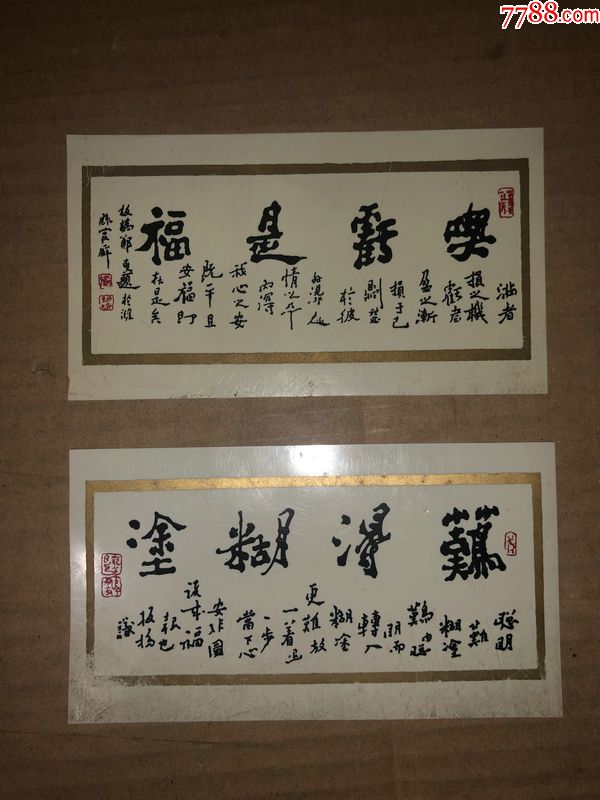 7788.com
喫虧是福
滿者
損之機
虧者
盈之漸
損于己
則益
於彼
外得人
情之平
内得
我心之安
既平且
安福即
在是矣
板橋鄭燮題於濰
縣官廨
難得糊塗
聰明
難
糊塗
難由聰
明而
轉入
糊塗
更難放
一着退
一步
當下心
安非圖
後來福
報也
板橋
識